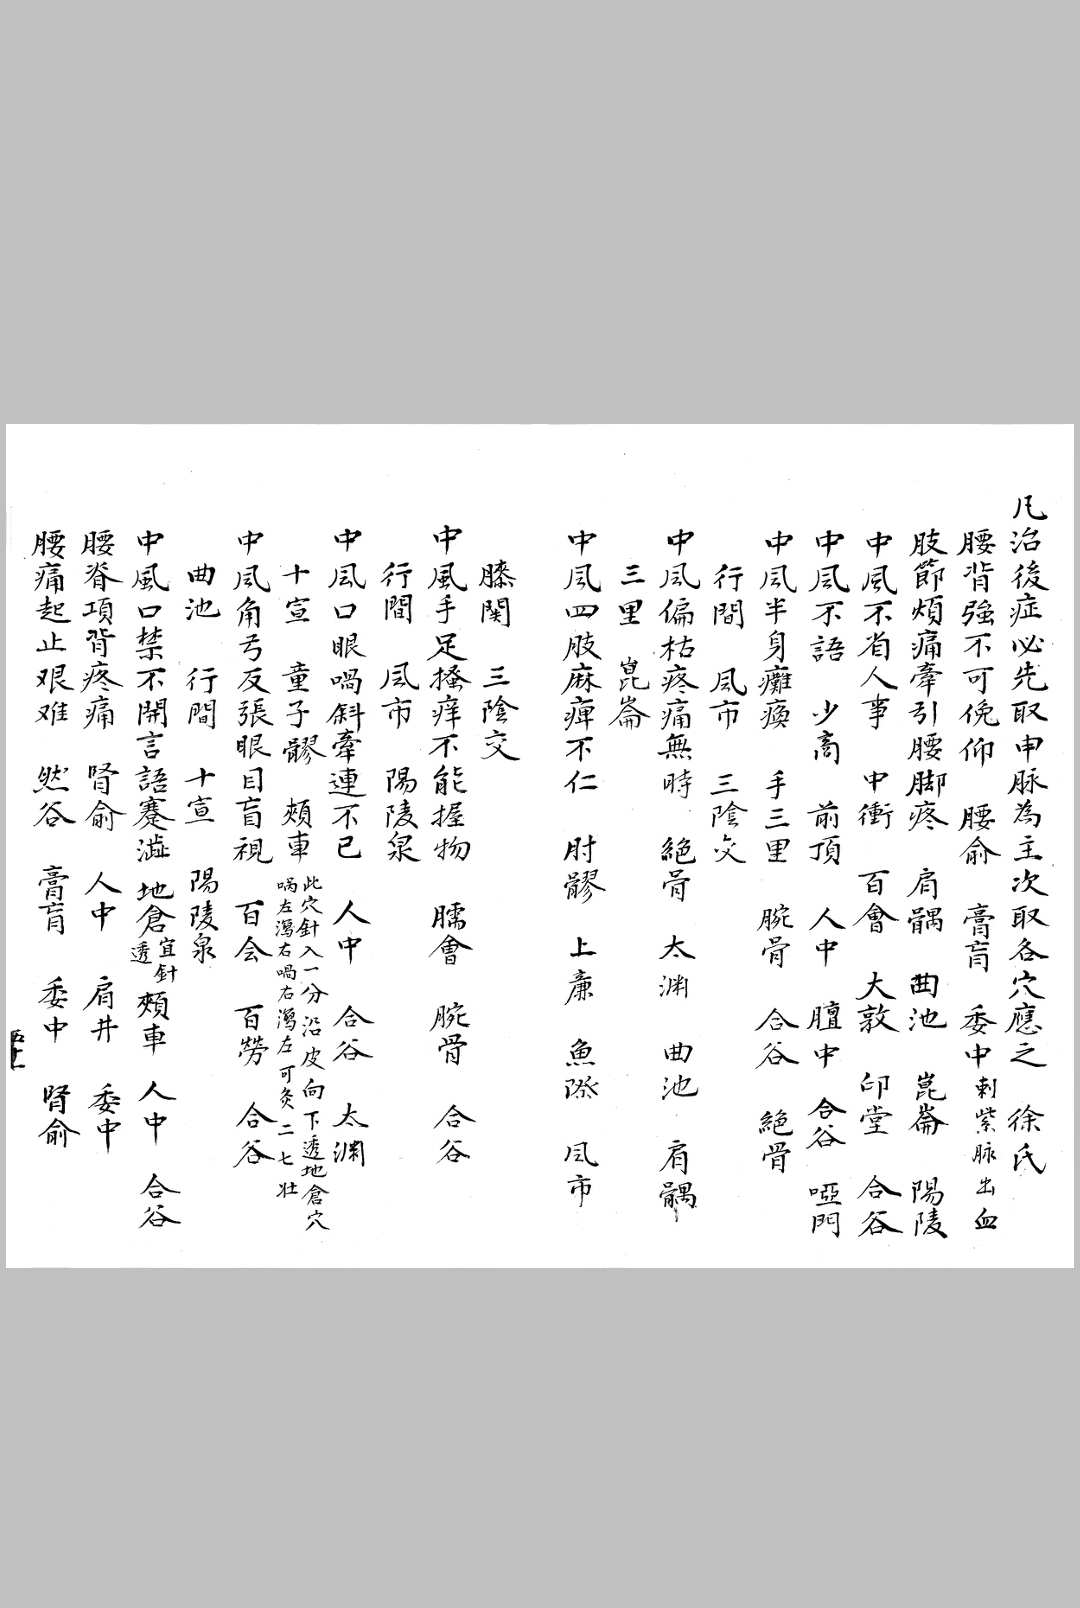 凡治後症必先取申脉為主次取各穴應之　徐氏
腰背強不可俛仰　腰俞　膏肓　委中刺紫脉出血
肢節煩痛牽引腰脚疼　肩髃　曲池　崑崙　陽陵
中風不省人事　中衝　百會　大敦　印堂　合谷
中风不語　少商　前頂　人中　膻中　合谷　啞門
中风半身癱瘓　手三里　腕骨　合谷　絶骨
行間　风市　三陰交
中风偏枯疼痛無時　絶骨　太渊　曲池　肩髃
三里　崑崙
中风四肢麻痺不仁　肘髎　上廉　魚際　风市
膝関　三陰交
中風手足搔痒不能握物　臑會　腕骨　合谷
行間　风市　陽陵泉
中风口眼喎斜牽連不已　人中　合谷　太渊
十宣　童子髎　頰車　此穴針入一分沿皮向下透地倉穴
喎左瀉右喎右瀉左可灸二七壮
中风角弓反張眼目盲視　百会　百勞　合谷
曲池　行間　十宣　陽陵泉
中風口禁不開言語蹇澁　地倉宜針透頰車　人中　合谷
腰脊項背疼痛　腎俞　人中　肩井　委中
腰痛起止艰难　然谷　膏肓　委中　腎俞